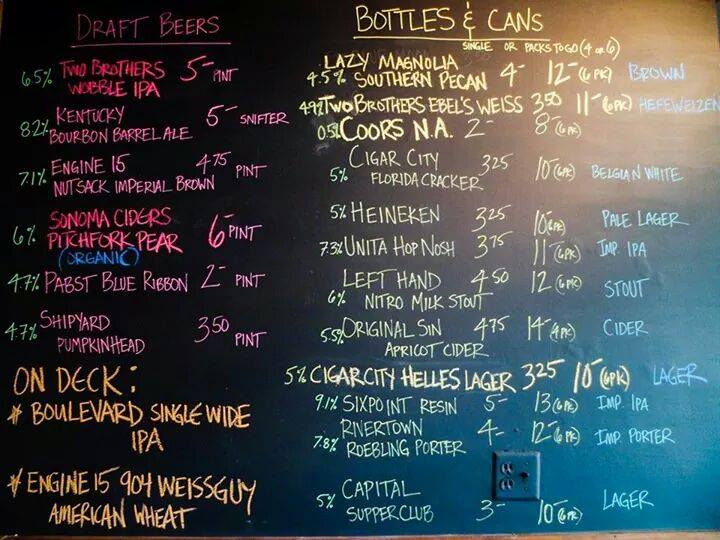 DRAFT BEERS
6.5% TWO BROTHERS WOBBLE IPA 5- PINT
8.2% KENTUCKY BOURBON BARREL ALE 5- SNIFTER
7.1% ENGINE 15 NUTSACK IMPERIAL BROWN 4.75 PINT
6% SONOMA CIDERS PITCHFORK PEAR (ORGANIC) 6- PINT
4.7% PABST BLUE RIBBON 2- PINT
4.7% SHIPYARD PUMPKINHEAD 3.50 PINT
ON DECK:
* BOULEVARD SINGLE WIDE
IPA
* ENGINE 15 904 WEISSGUY
AMERICAN WHEAT
BOTTLES & CANS
SINGLE OR PACKS TO GO (4 or 6)
4.5% LAZY MAGNOLIA SOUTHERN PECAN 4- 12- (6PK) BROWN
4.9% TWO BROTHERS EBEL'S WEISS 3.50 11- (6PK) HEFEWEIZEN
0.5% COORS N.A. 2- 8- (6PK)
5% CIGAR CITY FLORIDA CRACKER 3.25 10- (6PK) BELGIAN WHITE
5% HEINEKEN 3.25 10- (6PK) PALE LAGER
7.3% UNITA HOP NOSH 3.75 11- (6PK) IMP. IPA
6% LEFT HAND NITRO MILK STOUT 4.50 12- (6PK) STOUT
5.5% ORIGINAL SIN APRICOT CIDER 4.75 14- (4PK) CIDER
5% CIGAR CITY HELLES LAGER 3.25 10- (6PK) LAGER
9.1% SIXPOINT RESIN 5- 13- (6PK) IMP. IPA
7.8% RIVERTOWN ROEBLING PORTER 4- 12- (6PK) IMP. PORTER
5% CAPITAL SUPPER CLUB 3- 10- (6PK) LAGER